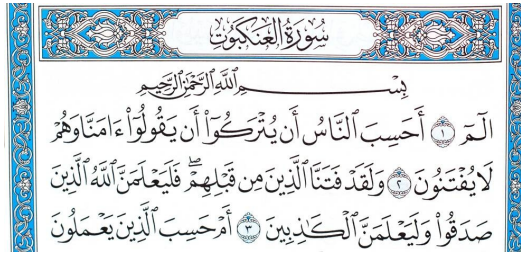 سُورَةُ العَنكَبُوتِ
بِسْمِ ٱللَّهِ ٱلرَّحْمَٰنِ ٱلرَّحِيمِ
الٓمٓ ١ أَحَسِبَ ٱلنَّاسُ أَن يُتْرَكُوٓا۟ أَن يَقُولُوٓا۟ ءَامَنَّا وَهُمْ
لَا يُفْتَنُونَ ٢ وَلَقَدْ فَتَنَّا ٱلَّذِينَ مِن قَبْلِهِمْ ۖ فَلَيَعْلَمَنَّ ٱللَّهُ ٱلَّذِينَ
صَدَقُوا۟ وَلَيَعْلَمَنَّ ٱلْكَٰذِبِينَ ٣ أَمْ حَسِبَ ٱلَّذِينَ يَعْمَلُونَ